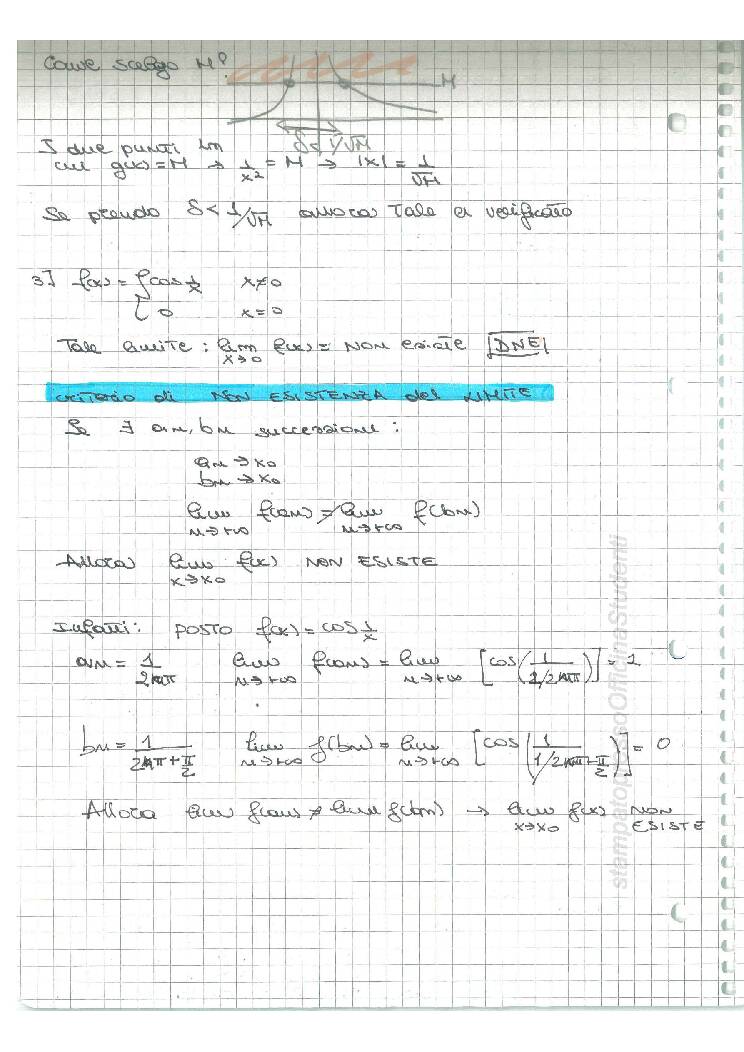 Come scelgo M?
M
δ < 1/√M
I due punti in
cui g(x) = M → 1/x² = M → |x| = 1/√M
Se prendo δ < 1/√M allora Tale è verificato
3] f(x) = { cos 1/x x≠0
0 x=0
Tale limite : lim x→0 f(x) = NON esiste |DNE|
criterio di NON ESISTENZA del LIMITE
Se ∃ an, bn successioni :
an → x0
bn → x0
lim n→+∞ f(an) ≠ lim n→+∞ f(bn)
Allora lim x→x0 f(x) NON ESISTE
Infatti: POSTO f(x) = cos 1/x
an = 1/2nπ lim n→+∞ f(an) = lim n→+∞ [cos(1/(1/2nπ))] = 1
bn = 1/(2nπ+π/2) lim n→+∞ f(bn) = lim n→+∞ [cos(1/(1/2nπ+π/2))] = 0
Allora lim f(an) ≠ lim f(bn) → lim x→x0 f(x) NON ESISTE